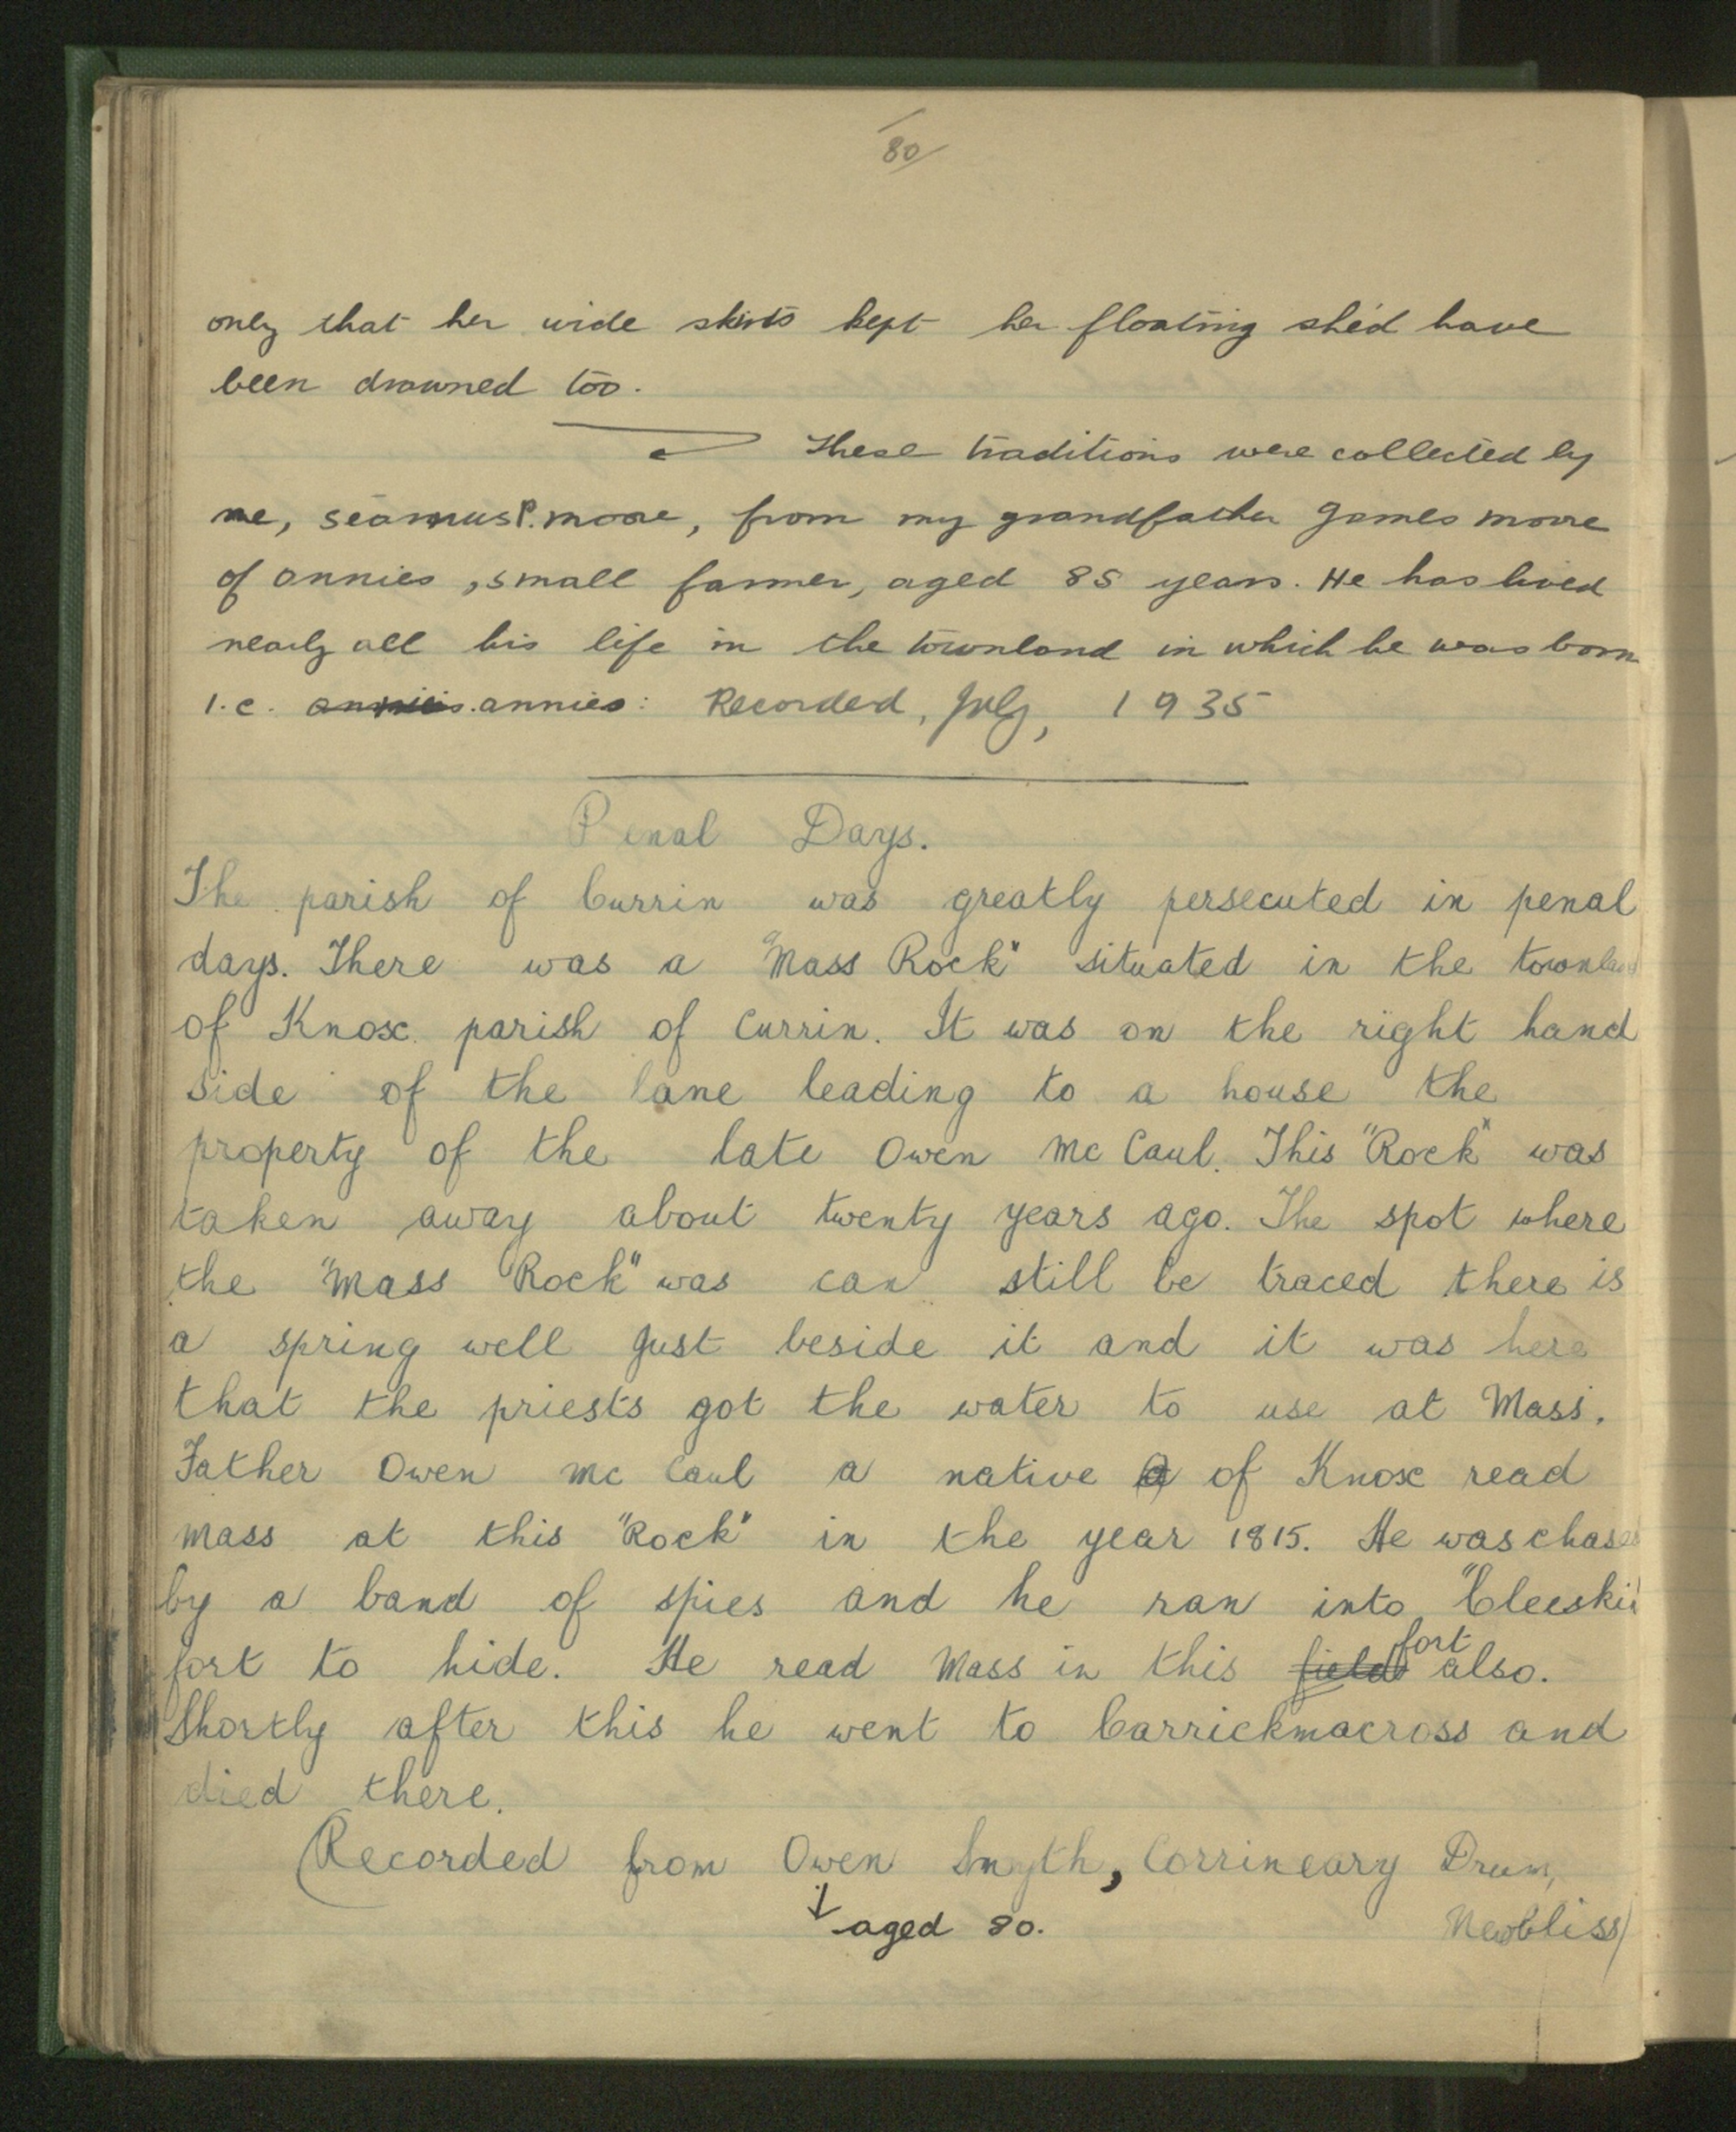 80
only that her wide skirts kept her floating she'd have
been drowned too.
These traditions were collected by
me, Séamus P. Moore, from my grandfather James Moore
of Annies, small farmer, aged 85 years. He has lived
nearly all his life in the townland in which he was born
i.e. Annies: Recorded, July, 1935
Penal Days.
The parish of Currin was greatly persecuted in penal
days. There was a "Mass Rock" situated in the townland
of Knox parish of Currin. It was on the right hand
side of the lane leading to a house the
property of the late Owen Mc Caul. This "Rock" was
taken away about twenty years ago. The spot where
the "Mass Rock" was can still be traced there is
a spring well just beside it and it was here
that the priests got the water to use at Mass.
Father Owen Mc Caul a native of Knox read
Mass at this "Rock" in the year 1815. He was chased
by a band of spies and he ran into
fort to hide. He read Mass in this field fort also.
Shortly after this he went to Carrickmacross and
died there.
(Recorded from Owen Smyth, Corrineary Drum,
aged 80. Newbliss)